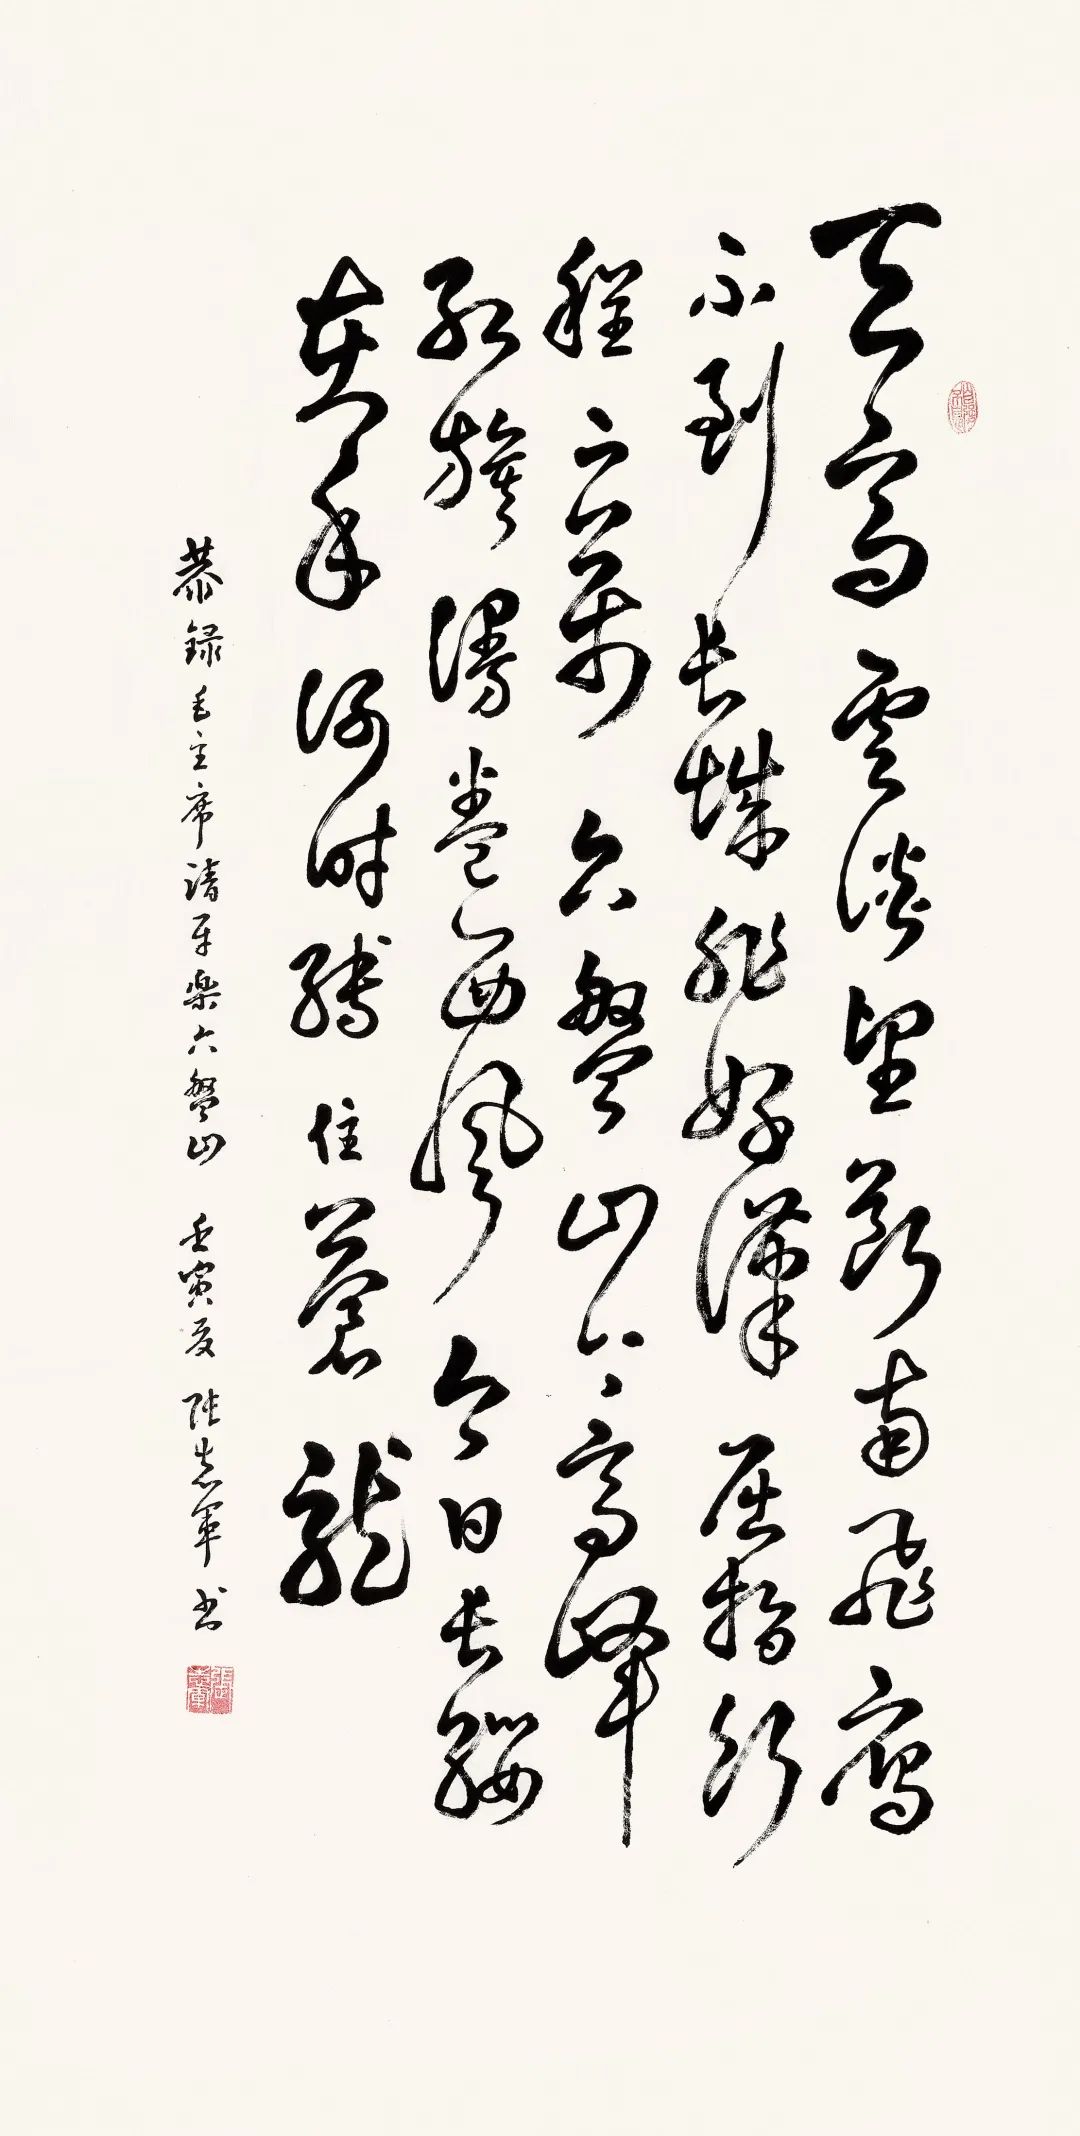 天高雲淡望断南飛雁
不到長城非好漢屈指行
程二萬六盤山上高峰
紅旗漫卷西風今日長纓
在手何時縛住蒼龍
恭録毛主席清平楽六盤山 壬寅夏 張志軍書